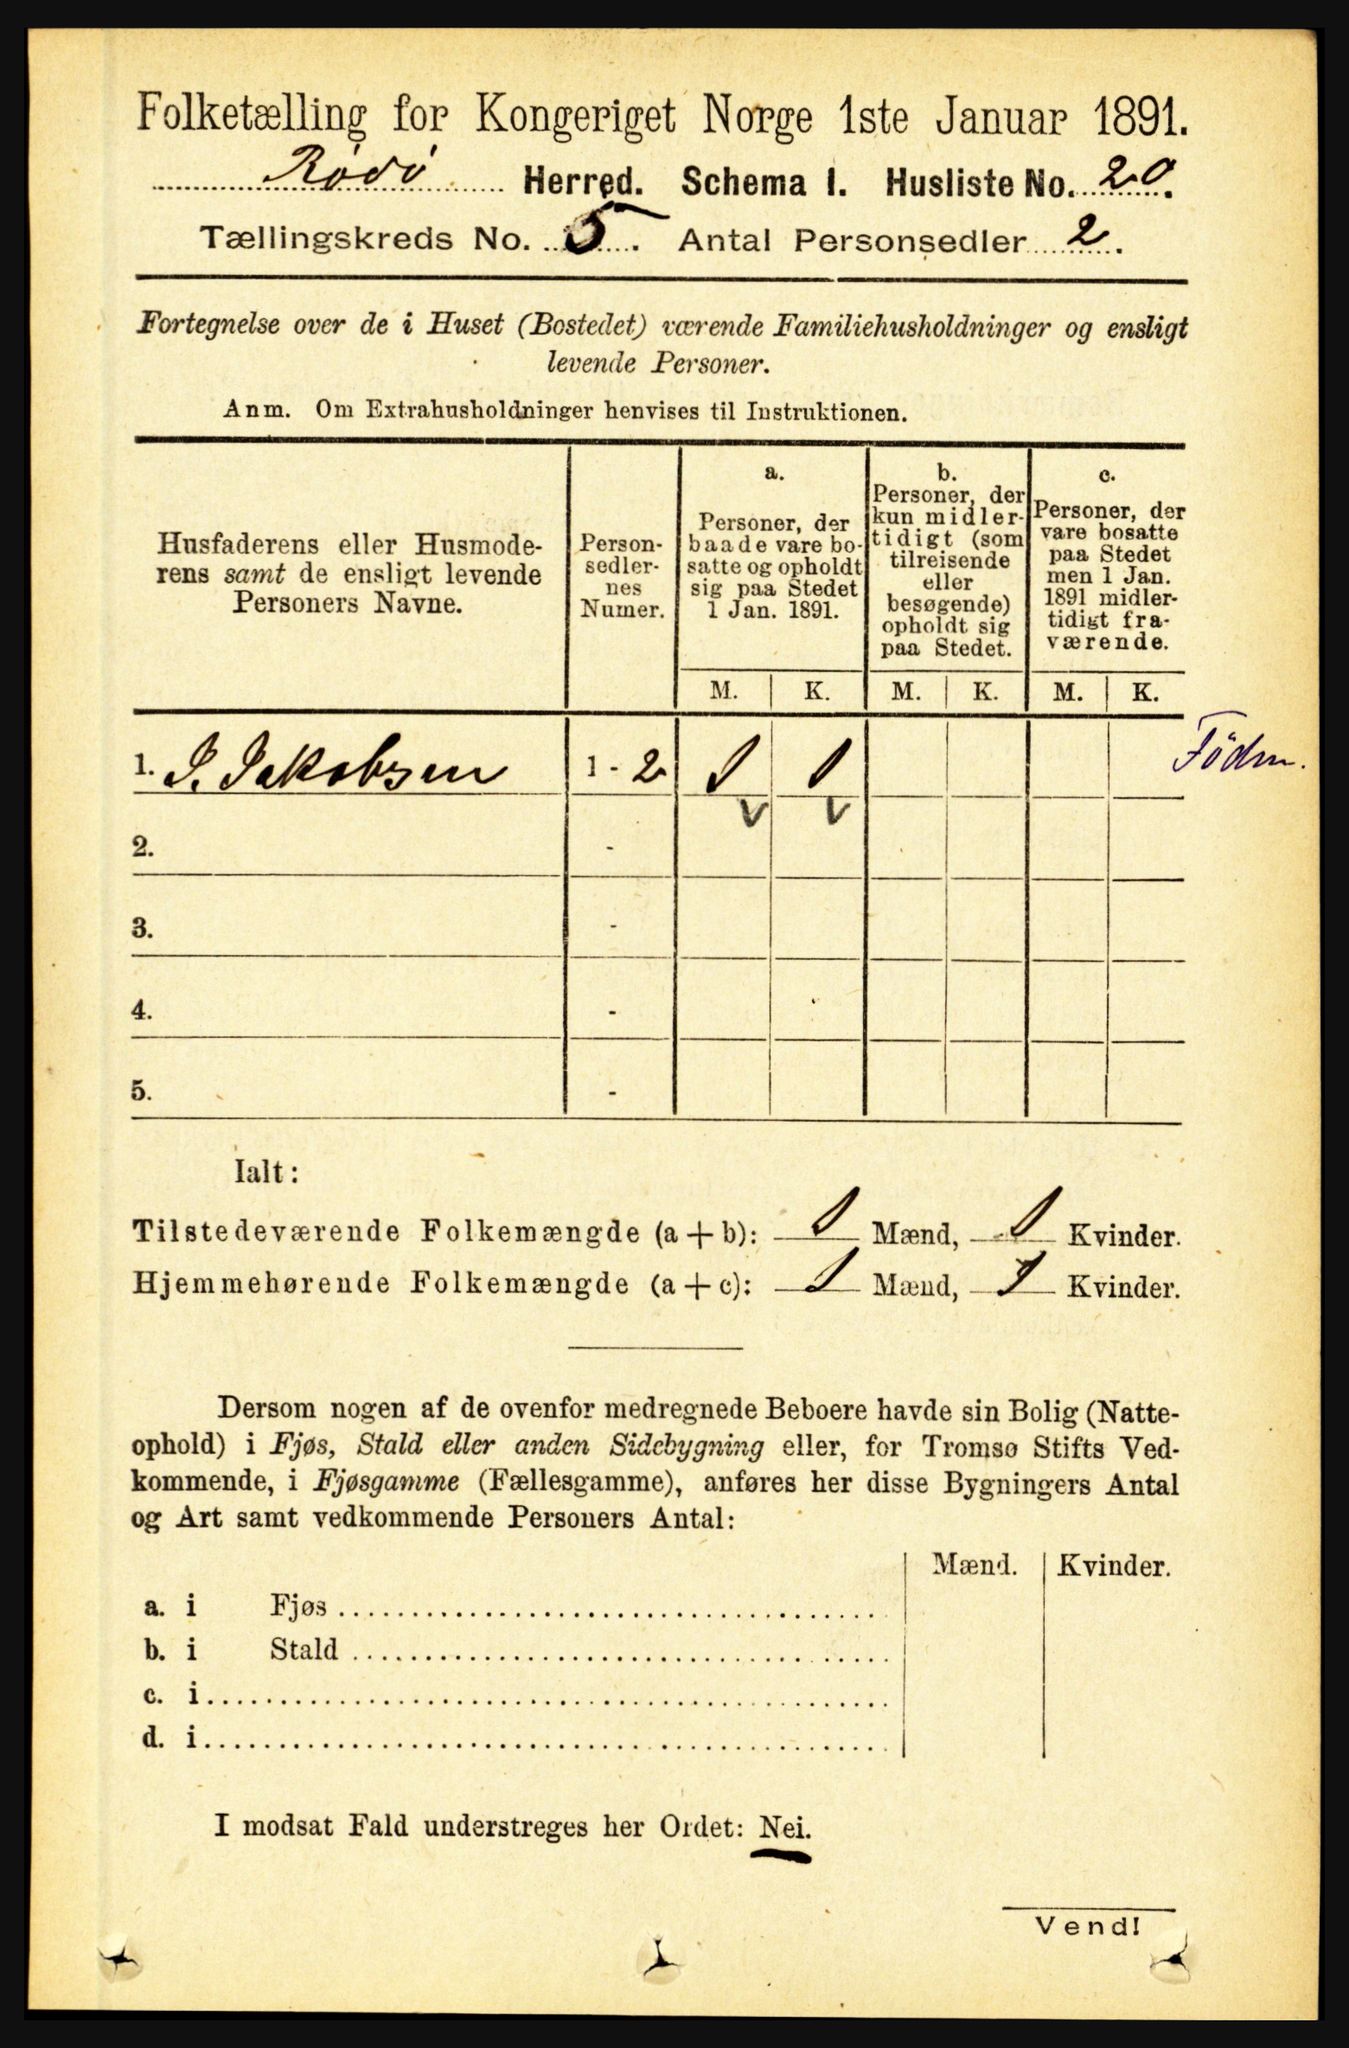 Folketælling for Kongeriget Norge 1ste Januar 1891.
Rödö Herred. Schema I. Husliste No. 20.
Tællingskreds No. 5. Antal Personsedler 2.
Fortegnelse over de i Huset (Bostedet) værende Familiehusholdninger og ensligt
levende Personer.
Anm. Om Extrahusholdninger henvises til Instruktionen.
Husfaderens eller Husmode-
rens samt de ensligt levende
Personers Navne.
Person-
sedler-
nes
Numer.
a.
Personer, der
baade vare bo-
satte og opholdt
sig paa Stedet
1 Jan. 1891.
b.
Personer, der
kun midler-
tidigt (som
tilreisende
eller
besøgende)
opholdt sig
paa Stedet.
c.
Personer, der
vare bosatte
paa Stedet
men 1 Jan.
1891 midler-
tidigt fra-
værende.
M. K. M. K. M. K.
1. J. Jakobsen 1 - 2 1 1
v v
2. -
3. -
4. -
5. -
Ialt:
Tilstedeværende Folkemængde (a + b): 1 Mænd, 1 Kvinder.
Hjemmehørende Folkemængde (a + c): 1 Mænd, 1 Kvinder.
Dersom nogen af de ovenfor medregnede Beboere havde sin Bolig (Natte-
ophold) i Fjøs, Stald eller anden Sidebygning eller, for Tromsø Stifts Ved-
kommende, i Fjøsgamme (Fællesgamme), anføres her disse Bygningers Antal
og Art samt vedkommende Personers Antal:
Mænd. Kvinder.
a. i Fjøs
b. i Stald
c. i
d. i
I modsat Fald understreges her Ordet: Nei.
Vend!